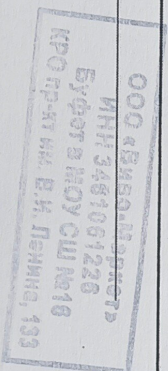 ООО «Вива-Маркет»
ИНН 3461061226
Буфет в МОУ СШ №16
КРО пр-кт им. В.И. Ленина, 133